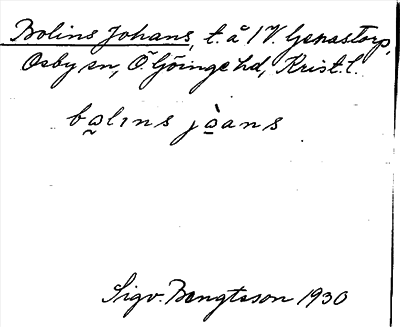 Bolins Johans, t. å 1 V. Genastorp,
Osby sn, Ö Göinge hd, Krist. l.
bo̰lıns jo̱̊̀ans
Sigv. Bengtsson 1930